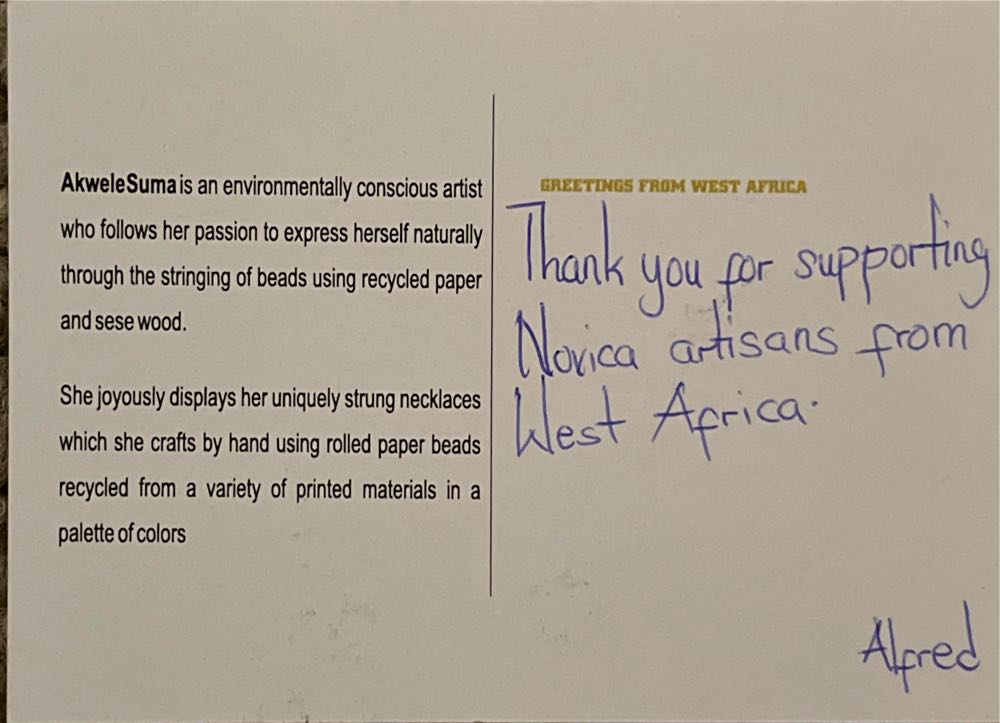 AkweleSuma is an environmentally conscious artist
who follows her passion to express herself naturally
through the stringing of beads using recycled paper
and sese wood.
She joyously displays her uniquely strung necklaces
which she crafts by hand using rolled paper beads
recycled from a variety of printed materials in a
palette of colors
GREETINGS FROM WEST AFRICA
Thank you for supporting
Novica artisans from
West Africa.
Alfred